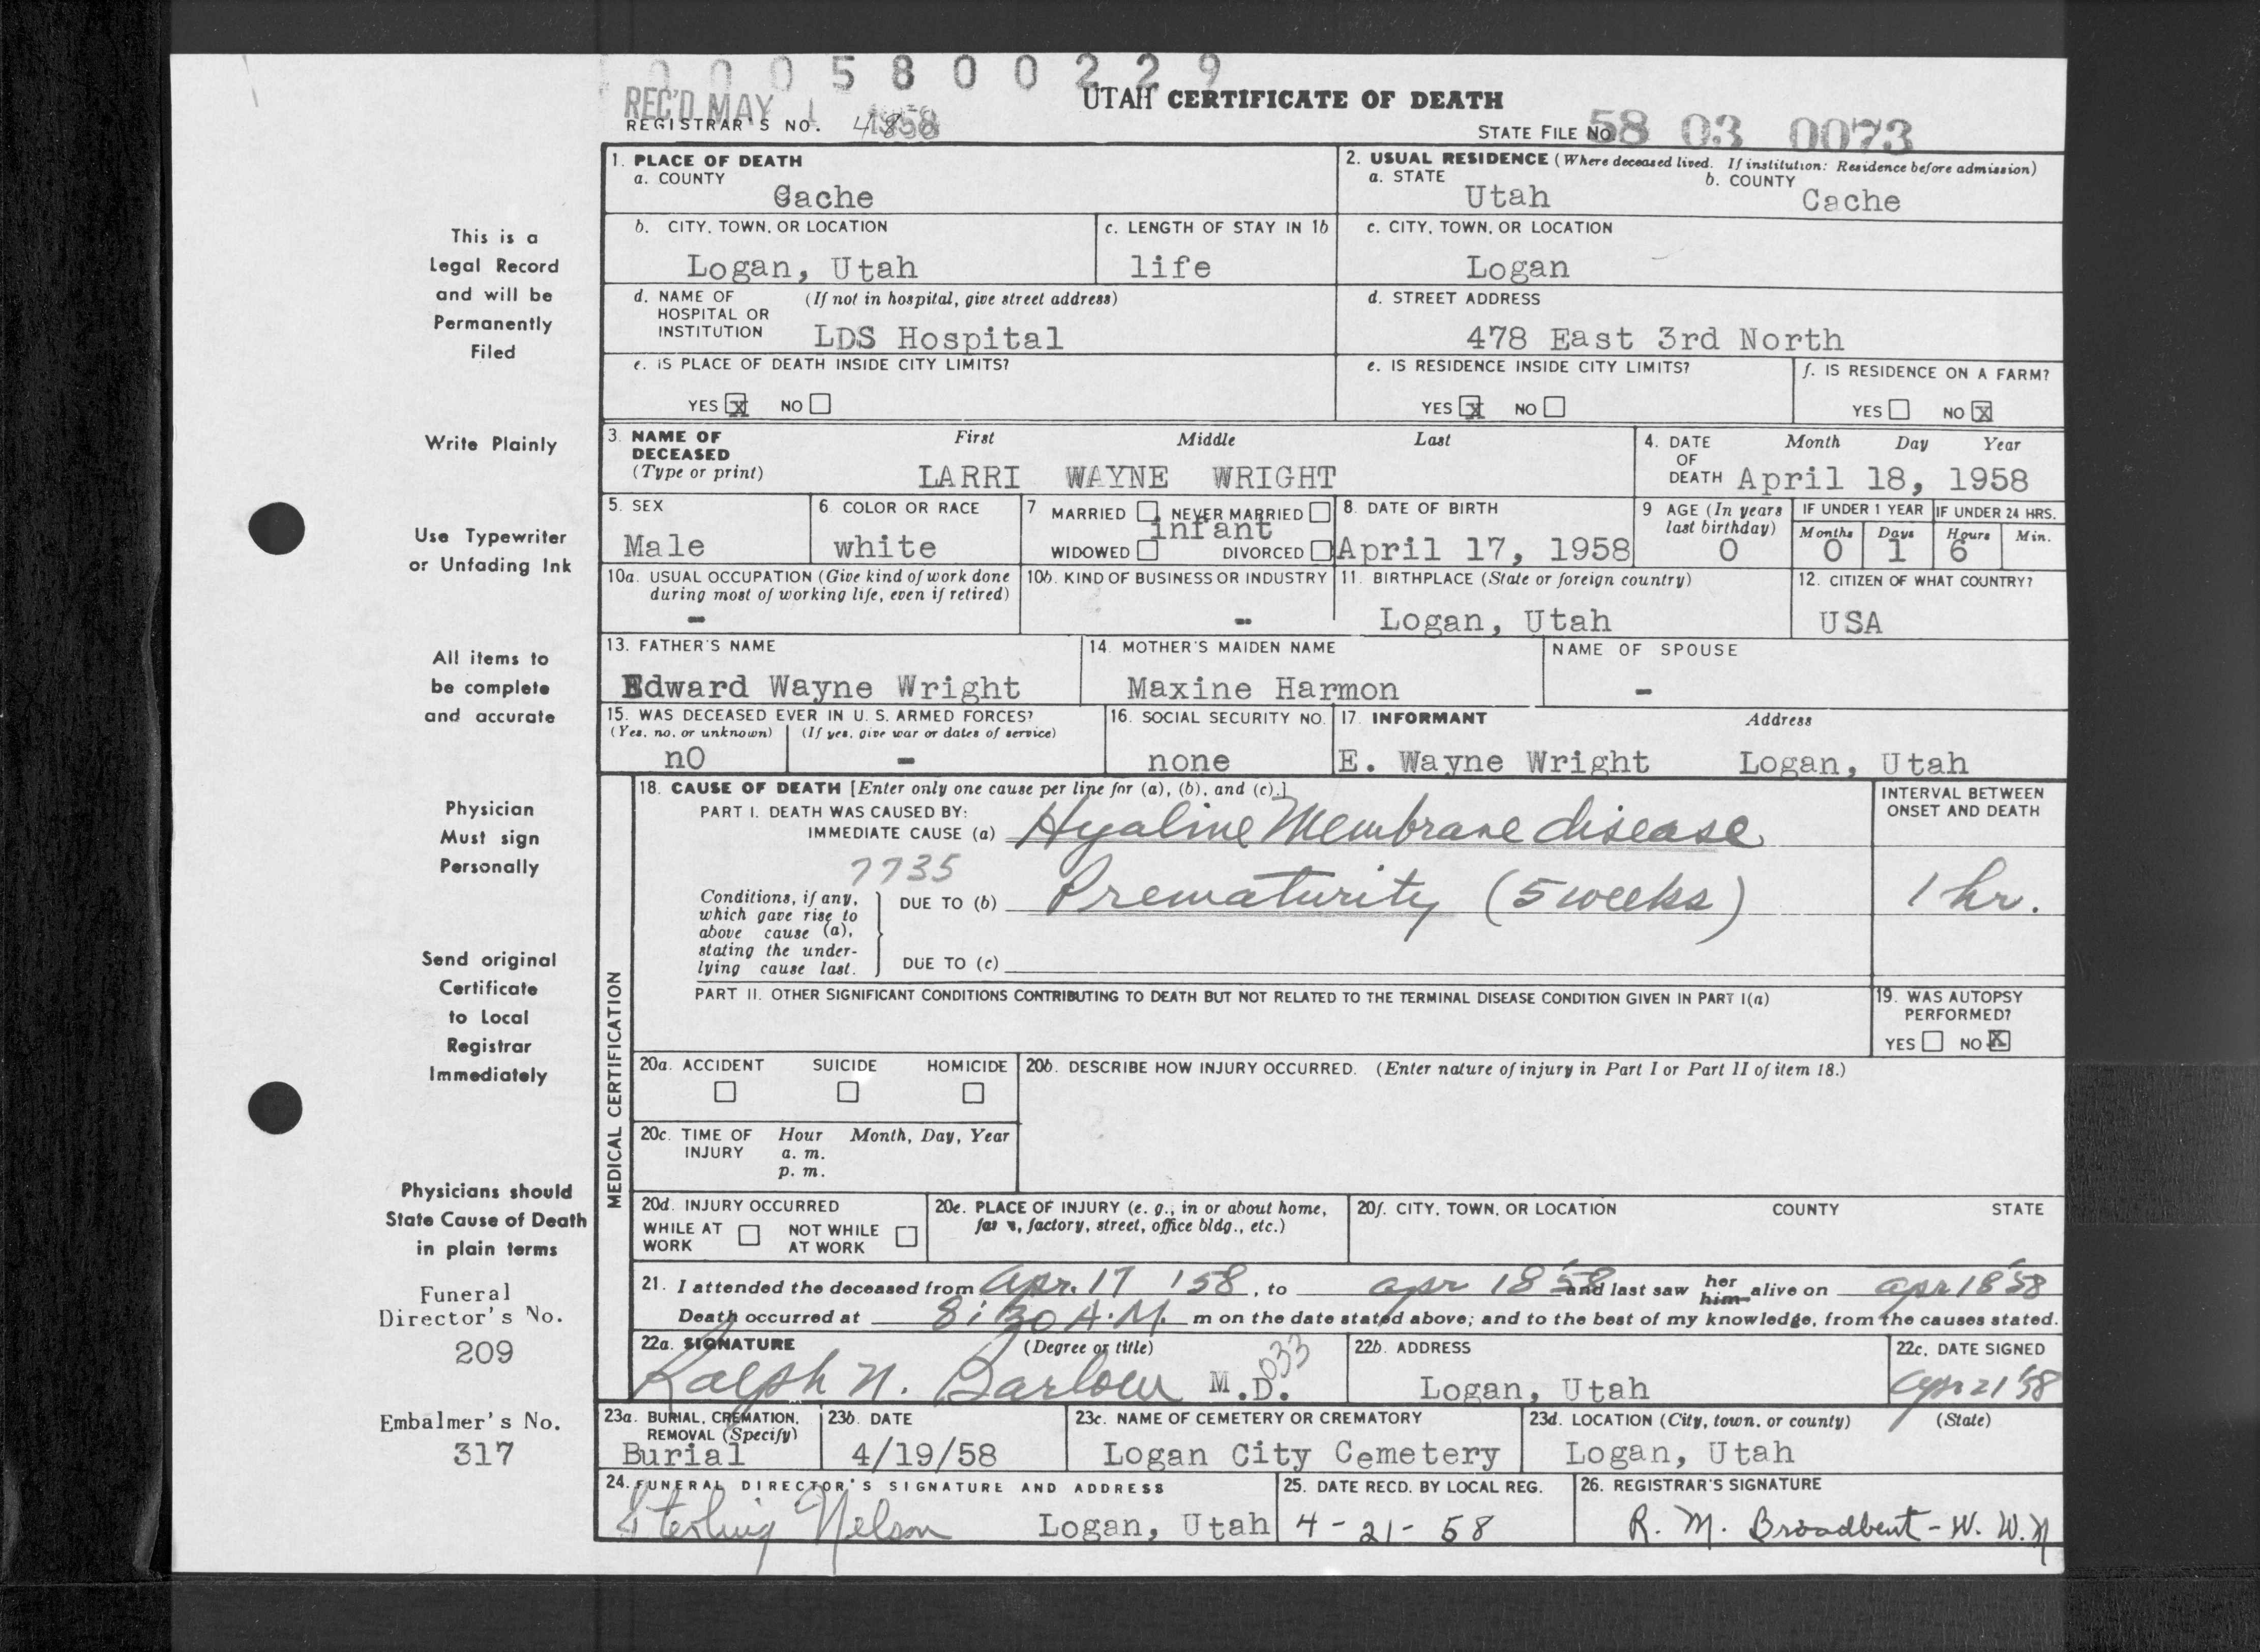 0005800229
REC'D MAY 1 1958
UTAH CERTIFICATE OF DEATH
REGISTRAR'S NO. 48
STATE FILE NO. 58 03 0073
This is a
Legal Record
and will be
Permanently
Filed
Write Plainly
Use Typewriter
or Unfading Ink
All items to
be complete
and accurate
Physician
Must sign
Personally
Send original
Certificate
to Local
Registrar
Immediately
Physicians should
State Cause of Death
in plain terms
Funeral
Director's No.
209
Embalmer's No.
317
1. PLACE OF DEATH
a. COUNTY
Cache
2. USUAL RESIDENCE (Where deceased lived. If institution: Residence before admission)
a. STATE
Utah
b. COUNTY
Cache
b. CITY, TOWN, OR LOCATION
Logan, Utah
c. LENGTH OF STAY IN 1b
life
c. CITY, TOWN, OR LOCATION
Logan
d. NAME OF (If not in hospital, give street address)
HOSPITAL OR
INSTITUTION LDS Hospital
d. STREET ADDRESS
478 East 3rd North
e. IS PLACE OF DEATH INSIDE CITY LIMITS?
YES X NO
e. IS RESIDENCE INSIDE CITY LIMITS?
YES X NO
f. IS RESIDENCE ON A FARM?
YES NO X
3. NAME OF
DECEASED
(Type or print)
First Middle Last
LARRI WAYNE WRIGHT
4. DATE
OF
DEATH
Month Day Year
April 18, 1958
5. SEX
Male
6. COLOR OR RACE
white
7 MARRIED NEVER MARRIED
infant
WIDOWED DIVORCED
8. DATE OF BIRTH
April 17, 1958
9 AGE (In years
last birthday)
0
IF UNDER 1 YEAR
Months Days
0 1
IF UNDER 24 HRS.
Hours Min.
6
10a. USUAL OCCUPATION (Give kind of work done
during most of working life, even if retired)
-
10b. KIND OF BUSINESS OR INDUSTRY
-
11. BIRTHPLACE (State or foreign country)
Logan, Utah
12. CITIZEN OF WHAT COUNTRY?
USA
13. FATHER'S NAME
Edward Wayne Wright
14. MOTHER'S MAIDEN NAME
Maxine Harmon
NAME OF SPOUSE
-
15. WAS DECEASED EVER IN U. S. ARMED FORCES?
(Yes, no, or unknown) (If yes, give war or dates of service)
nO -
16. SOCIAL SECURITY NO.
none
17. INFORMANT Address
E. Wayne Wright Logan, Utah
MEDICAL CERTIFICATION
18. CAUSE OF DEATH [Enter only one cause per line for (a), (b), and (c).]
PART I. DEATH WAS CAUSED BY:
IMMEDIATE CAUSE (a) Hyaline Membrane disease
7735
INTERVAL BETWEEN
ONSET AND DEATH
Conditions, if any,
which gave rise to
above cause (a),
stating the under-
lying cause last.
DUE TO (b) Prematurity (5 weeks)
1 hr.
DUE TO (c)
PART II. OTHER SIGNIFICANT CONDITIONS CONTRIBUTING TO DEATH BUT NOT RELATED TO THE TERMINAL DISEASE CONDITION GIVEN IN PART I(a)
19. WAS AUTOPSY
PERFORMED?
YES NO X
20a. ACCIDENT SUICIDE HOMICIDE
20b. DESCRIBE HOW INJURY OCCURRED. (Enter nature of injury in Part I or Part II of item 18.)
20c. TIME OF Hour Month, Day, Year
INJURY a. m.
p. m.
20d. INJURY OCCURRED
WHILE AT NOT WHILE
WORK AT WORK
20e. PLACE OF INJURY (e. g., in or about home,
farm, factory, street, office bldg., etc.)
20f. CITY, TOWN, OR LOCATION COUNTY STATE
21. I attended the deceased from Apr. 17 '58, to apr 18 '58 and last saw her him alive on apr 18 '58
Death occurred at 8:30 A.M. m on the date stated above; and to the best of my knowledge, from the causes stated.
22a. SIGNATURE (Degree or title)
Ralph N. Barlow M.D.
033
22b. ADDRESS
Logan, Utah
22c. DATE SIGNED
Apr 21 '58
23a. BURIAL, CREMATION,
REMOVAL (Specify)
Burial
23b. DATE
4/19/58
23c. NAME OF CEMETERY OR CREMATORY
Logan City Cemetery
23d. LOCATION (City, town, or county) (State)
Logan, Utah
24. FUNERAL DIRECTOR'S SIGNATURE AND ADDRESS
Sterling Nelson Logan, Utah
25. DATE RECD. BY LOCAL REG.
4-21-58
26. REGISTRAR'S SIGNATURE
R. M. Broadbent - W. W. N